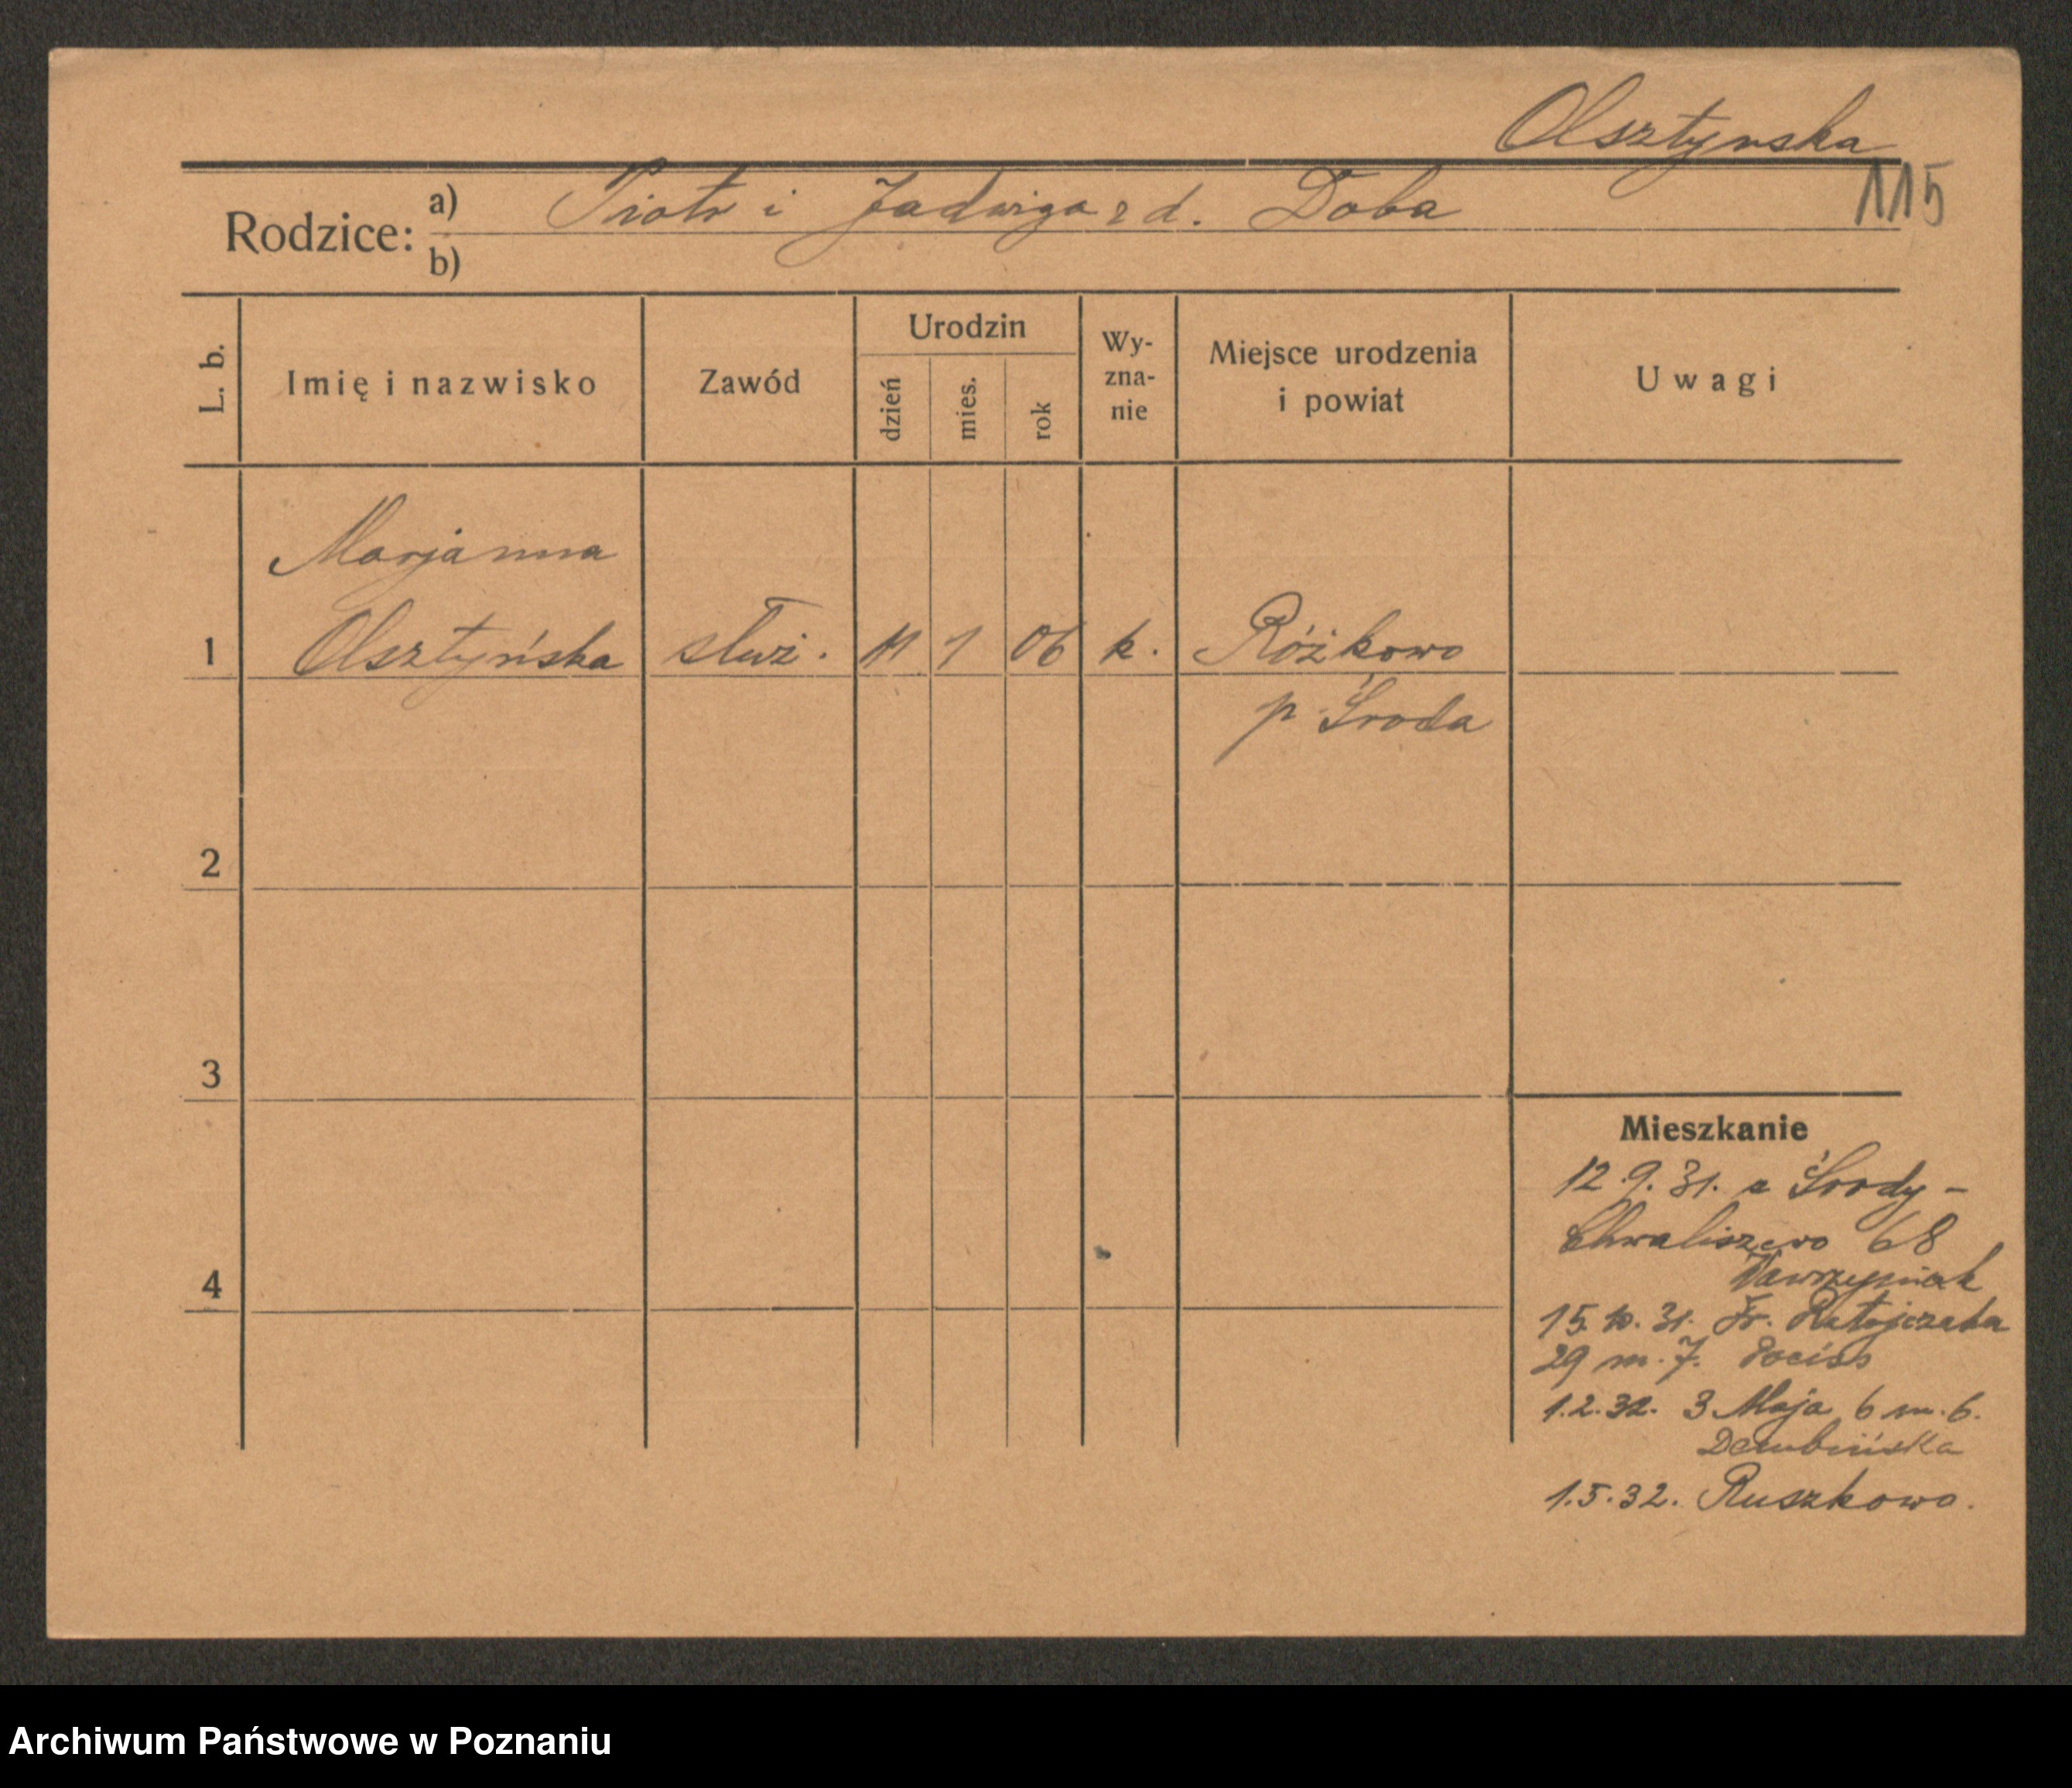 Olsztynska
115
Rodzice: a) Piotr i Jadwiga z d. Doba
b)
L. b. Imię i nazwisko Zawód Urodzin dzień mies. rok Wy-zna-nie Miejsce urodzenia i powiat Uwagi
Marjanna
1 Olsztyńska służ. 11 1 06 k. Różkowo
p Środa
2
3
Mieszkanie
12.9.31. z Środy -
Chwaliszewo 68
4 Wawrzyniak
15.10.31. Fr. Ratajczaka
29 m. 7.
1.2.32. 3 Maja 6 m. 6.
Dembińska
1.5.32. Ruszkowo.
Archiwum Państwowe w Poznaniu